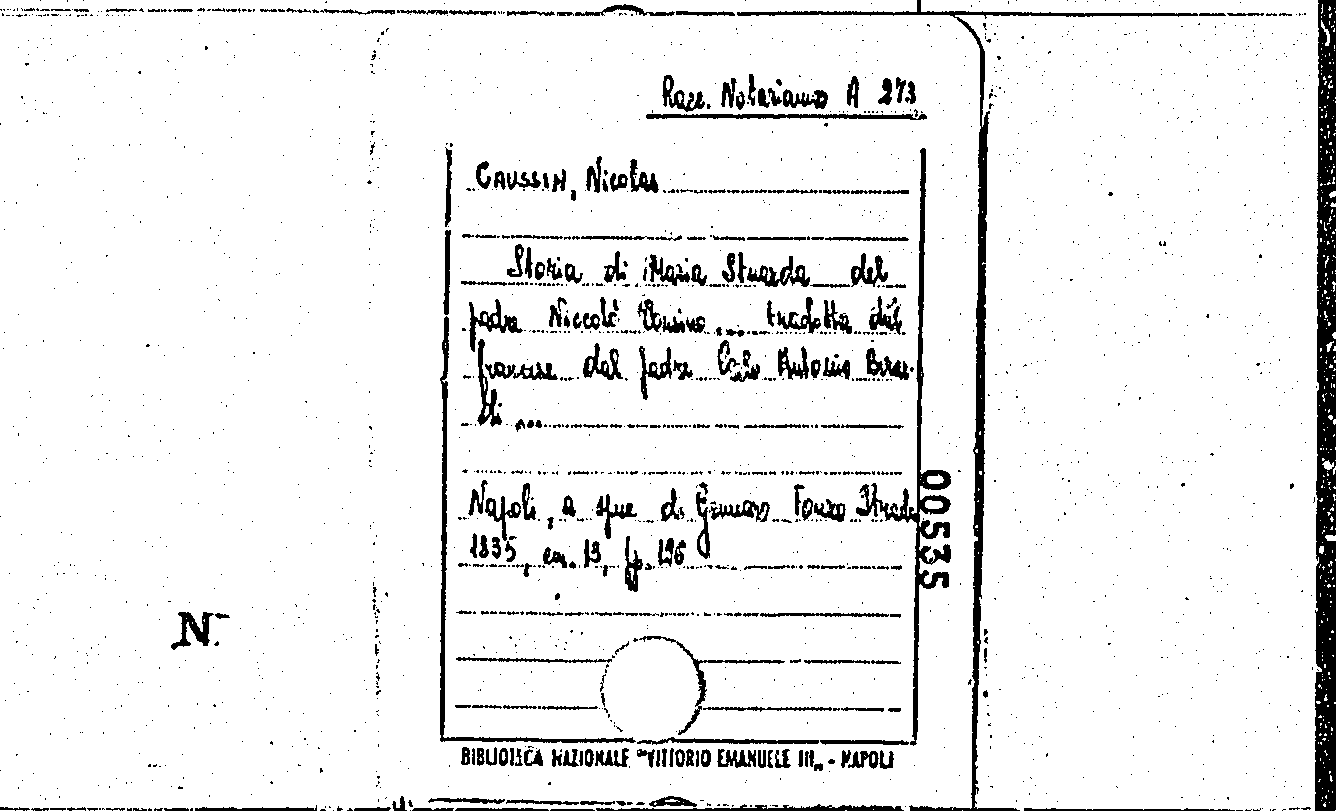 Racc. Notarianno A 273
CAUSSIN, Nicolas
Storia di Maria Stuarda del
padre Niccolò ... tradotta dal
francese dal padre Carlo Antonio
ti ...
Napoli, a spe di Gennaro Fonzo Strada
1835, cm. 13, pp. 196
00535
N.
BIBLIOTECA NAZIONALE "VITTORIO EMANUELE III„ - NAPOLI